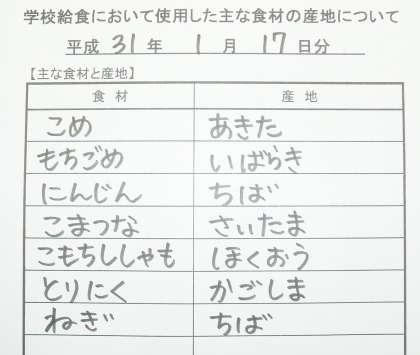 学校給食において使用した主な食材の産地について
平成 31 年 1 月 17 日分
【主な食材と産地】
食材 産地
こめ あきた
もちごめ いばらき
にんじん ちば
こまつな さいたま
こもちししゃも ほくおう
とりにく かごしま
ねぎ ちば